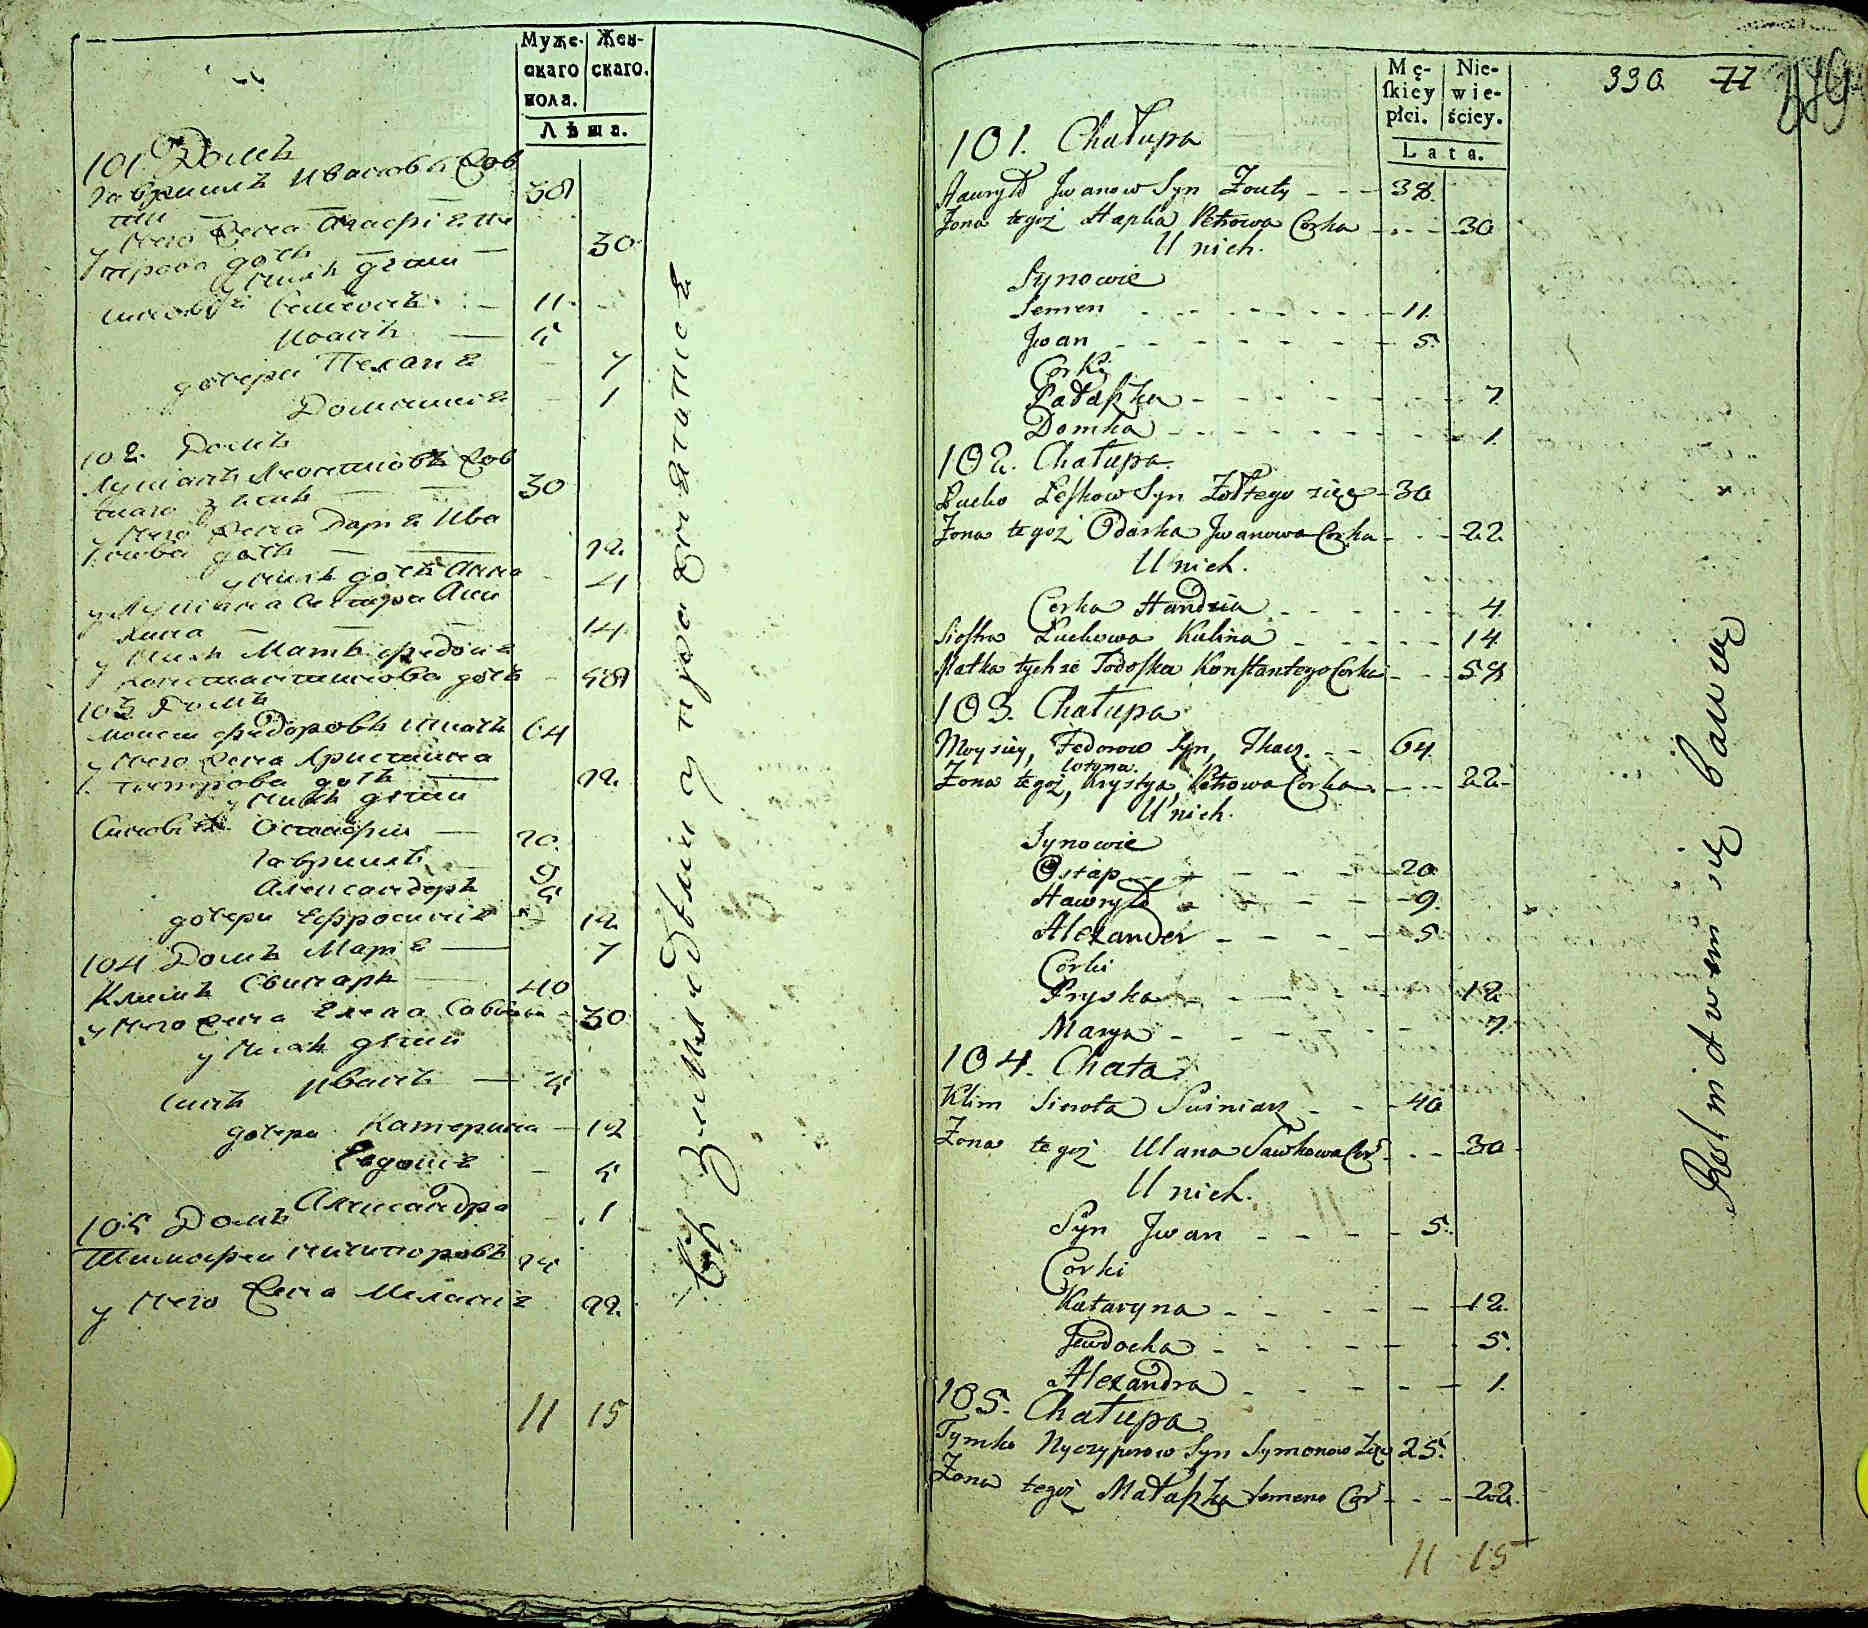 Муже-
скаго
пола.
Жен-
скаго.
Лѣта.
101 Домъ
Гавриилъ Ивановъ Жов
тий 38
у него жена Агафія Пе
трова дочь 30
у нихъ дѣти
синовья Семіонъ 11
Иоанъ 5
дочери Пелагія 7
Домникія 1
102 Домъ
30
у него жена Дарія Ива
нова дочь 22
у нихъ дочь Анна 4
сестра Аки
лина 14
у нихъ Мать Федосія
Константинова дочь 58
103 Домъ
Моисей Федоровъ Ткачъ 64
у него жена Христина
Петрова дочь 22
у нихъ дѣти
Синовья Остафій 20
Гавриилъ 9
Александеръ 5
дочери Ефросинія 12
104 Домъ Марія 7
Климъ Свинарь 40
у него жена Елена 30
у нихъ дѣти
синъ Иванъ 5
дочери Катерина 12
Евдокія 5
Александра 1
105 Домъ
Тимофей Никифоровъ 25
у него жена Меланія 22
11 15
Mę-
skiey
płci.
Nie-
wie-
ściey.
Lata.
330 77
101. Chałupa
Hawryło Jwanow Syn Żouty 38.
Żona tegoż Hapka Petrowa Corka 30
U nich.
Synowie
Semen 11.
Jwan 5.
Corki
Pałaszka 7.
Domka 1.
102. Chałupa.
Łucko Leskow Syn Żołtego zięć 30
Żona tegoż Odarka Jwanowa Corka 22.
U nich.
Corka Handzia 4.
Siostra Łuckowa Kulina 14
Matka tychże Todoska Konstantego Corka 58
103. Chałupa
Moysiey, Fedorow Syn, Tkacz 64.
Żona tegoż, Krystya, Petrowa Corka 22.
U nich.
Synowie
Ostap 20
Hawryło 9.
Alexander 5
Corki
Pryska 12.
Marya 7.
104. Chata
Klim Sierota Swiniarz 40
Żona tegoż Ulana Sawkowa Cor 30
U nich.
Syn Jwan 5.
Corki
Kataryna 12.
Jewdocha 5.
Alexandra 1.
105. Chałupa
Tymko Nyczyporow Syn Symonow Zięć 25.
Żona tegoż Małaszka Semena Cor 22.
11 15
Rolnictwem się bawią